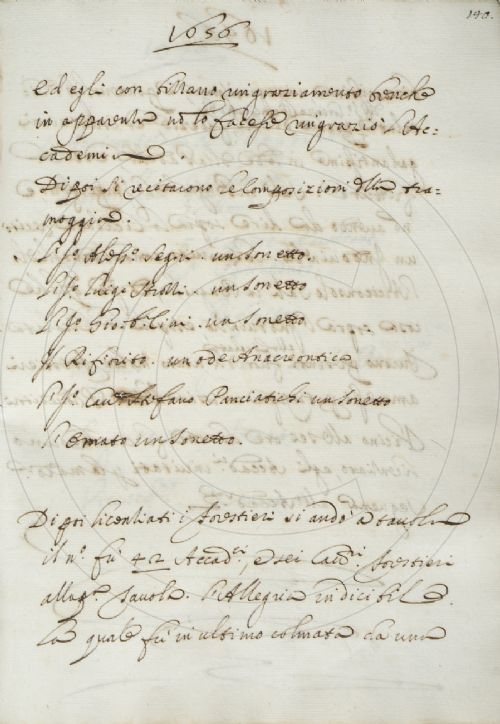 140.
1656
ed egli con billano ringraziamento benche
in apparenza nõ lo facesse ringraziò l'Ac=
cademia
Dipoi si recitarono le Composizioni della tra=
moggia.
Il Sr. Aless.o Segni. un Sonetto.
Il Sr. Luigi Rucellai. un Sonetto
Il Sr. Gio: b. Lini. un Sonetto
Il Rifiorito. un ode Anacreontica
Il Sr. Cau. Stefano Panciatichi un Sonetto
Il Smato un Sonetto.
Dipoi licenziati i forestieri si andò a tauola
il n.o fù 42 Accad.ci, e sei Cau.ri forestieri
alla Tauola. l'Allegria indicibile.
La quale fù in ultimo colmata da una